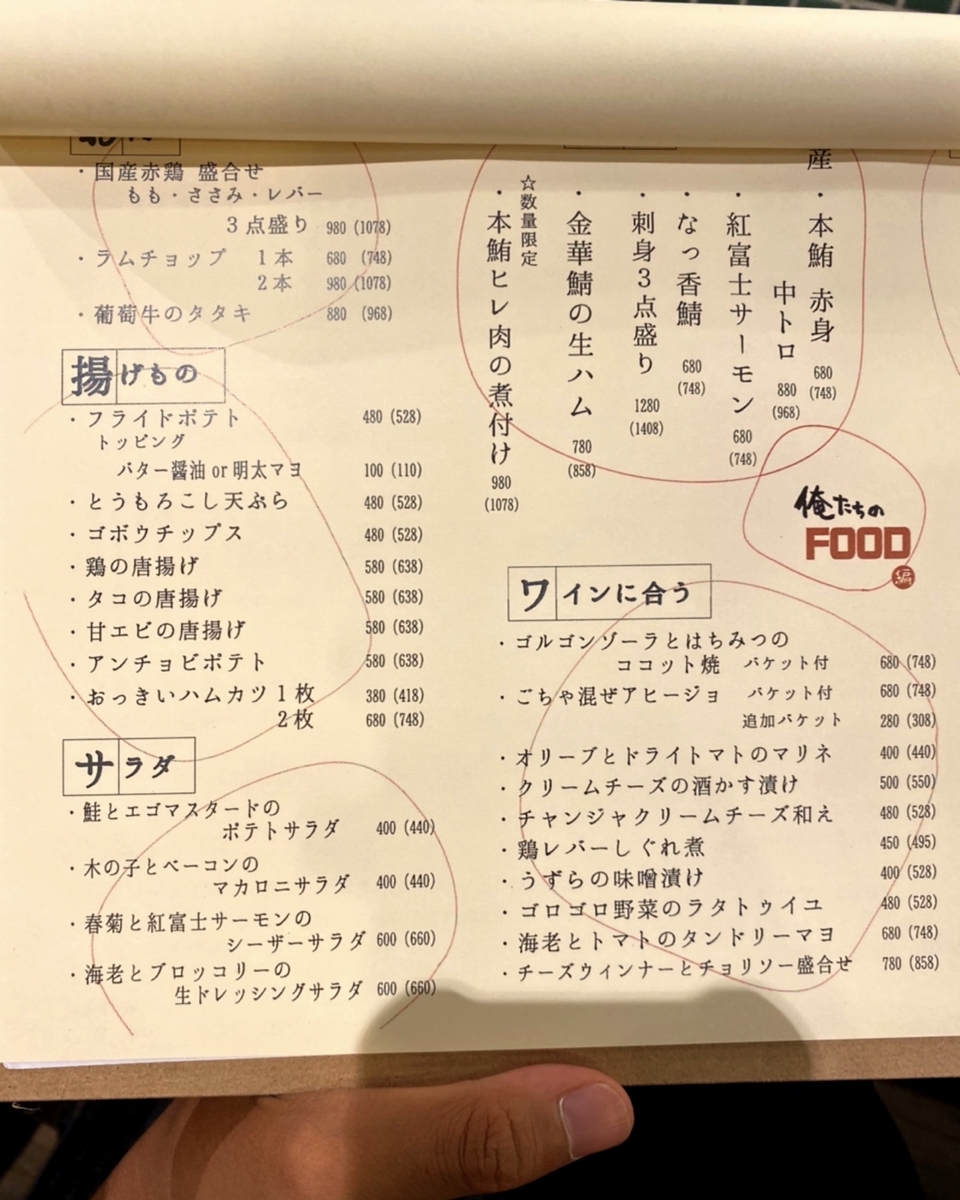 ・国産赤鶏 盛合せ
もも・ささみ・レバー
3点盛り 980 (1078)
・ラムチョップ 1本 680 (748)
2本 980 (1078)
・葡萄牛のタタキ 880 (968)
揚げもの
・フライドポテト 480 (528)
トッピング
バター醤油 or 明太マヨ 100 (110)
・とうもろこし天ぷら 480 (528)
・ゴボウチップス 480 (528)
・鶏の唐揚げ 580 (638)
・タコの唐揚げ 580 (638)
・甘エビの唐揚げ 580 (638)
・アンチョビポテト 580 (638)
・おっきいハムカツ 1枚 380 (418)
2枚 680 (748)
サラダ
・鮭とエゴマスタードの
ポテトサラダ 400 (440)
・木の子とベーコンの
マカロニサラダ 400 (440)
・春菊と紅富士サーモンの
シーザーサラダ 600 (660)
・海老とブロッコリーの
生ドレッシングサラダ 600 (660)
産
・本鮪 赤身 680 (748)
中トロ 880 (968)
・紅富士サーモン 680 (748)
・なっ香鯖 680 (748)
・刺身3点盛り 1280 (1408)
・金華鯖の生ハム 780 (858)
☆数量限定
・本鮪ヒレ肉の煮付け 980 (1078)
俺たちの
FOOD
編
ワインに合う
・ゴルゴンゾーラとはちみつの
ココット焼 バケット付 680 (748)
・ごちゃ混ぜアヒージョ バケット付 680 (748)
追加バケット 280 (308)
・オリーブとドライトマトのマリネ 400 (440)
・クリームチーズの酒かす漬け 500 (550)
・チャンジャクリームチーズ和え 480 (528)
・鶏レバーしぐれ煮 450 (495)
・うずらの味噌漬け 400 (528)
・ゴロゴロ野菜のラタトゥイユ 480 (528)
・海老とトマトのタンドリーマヨ 680 (748)
・チーズウィンナーとチョリソー盛合せ 780 (858)